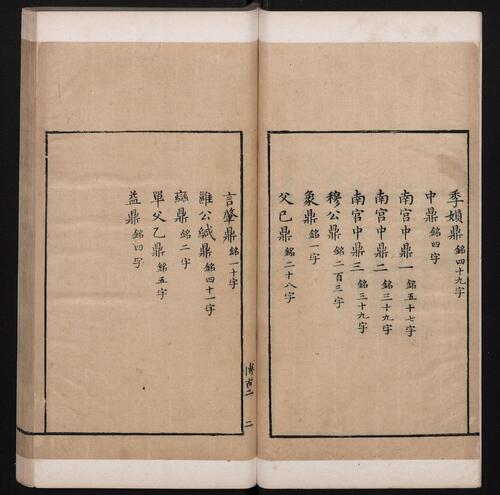 季娟鼎 銘四十九字
中鼎 銘四字
南宫中鼎一 銘五十七字
南宫中鼎二 銘三十九字
南宫中鼎三 銘三十九字
穆公鼎 銘二百三字
象鼎 銘一字
父己鼎 銘二十八字
言肇鼎 銘一十字
雝公緘鼎 銘四十一字
鼎 銘二字
單父乙鼎 銘五字
益鼎 銘四字
博古二 二